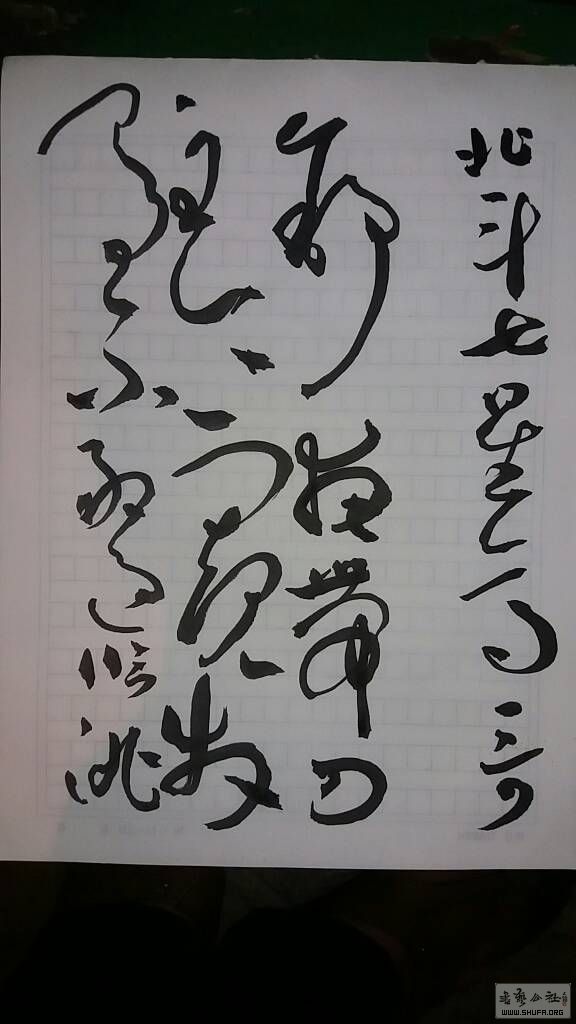 北斗七星高哥
舒夜带刀
至今窥牧
马不敢过临洮
书艺公社
WWW.SHUFA.ORG